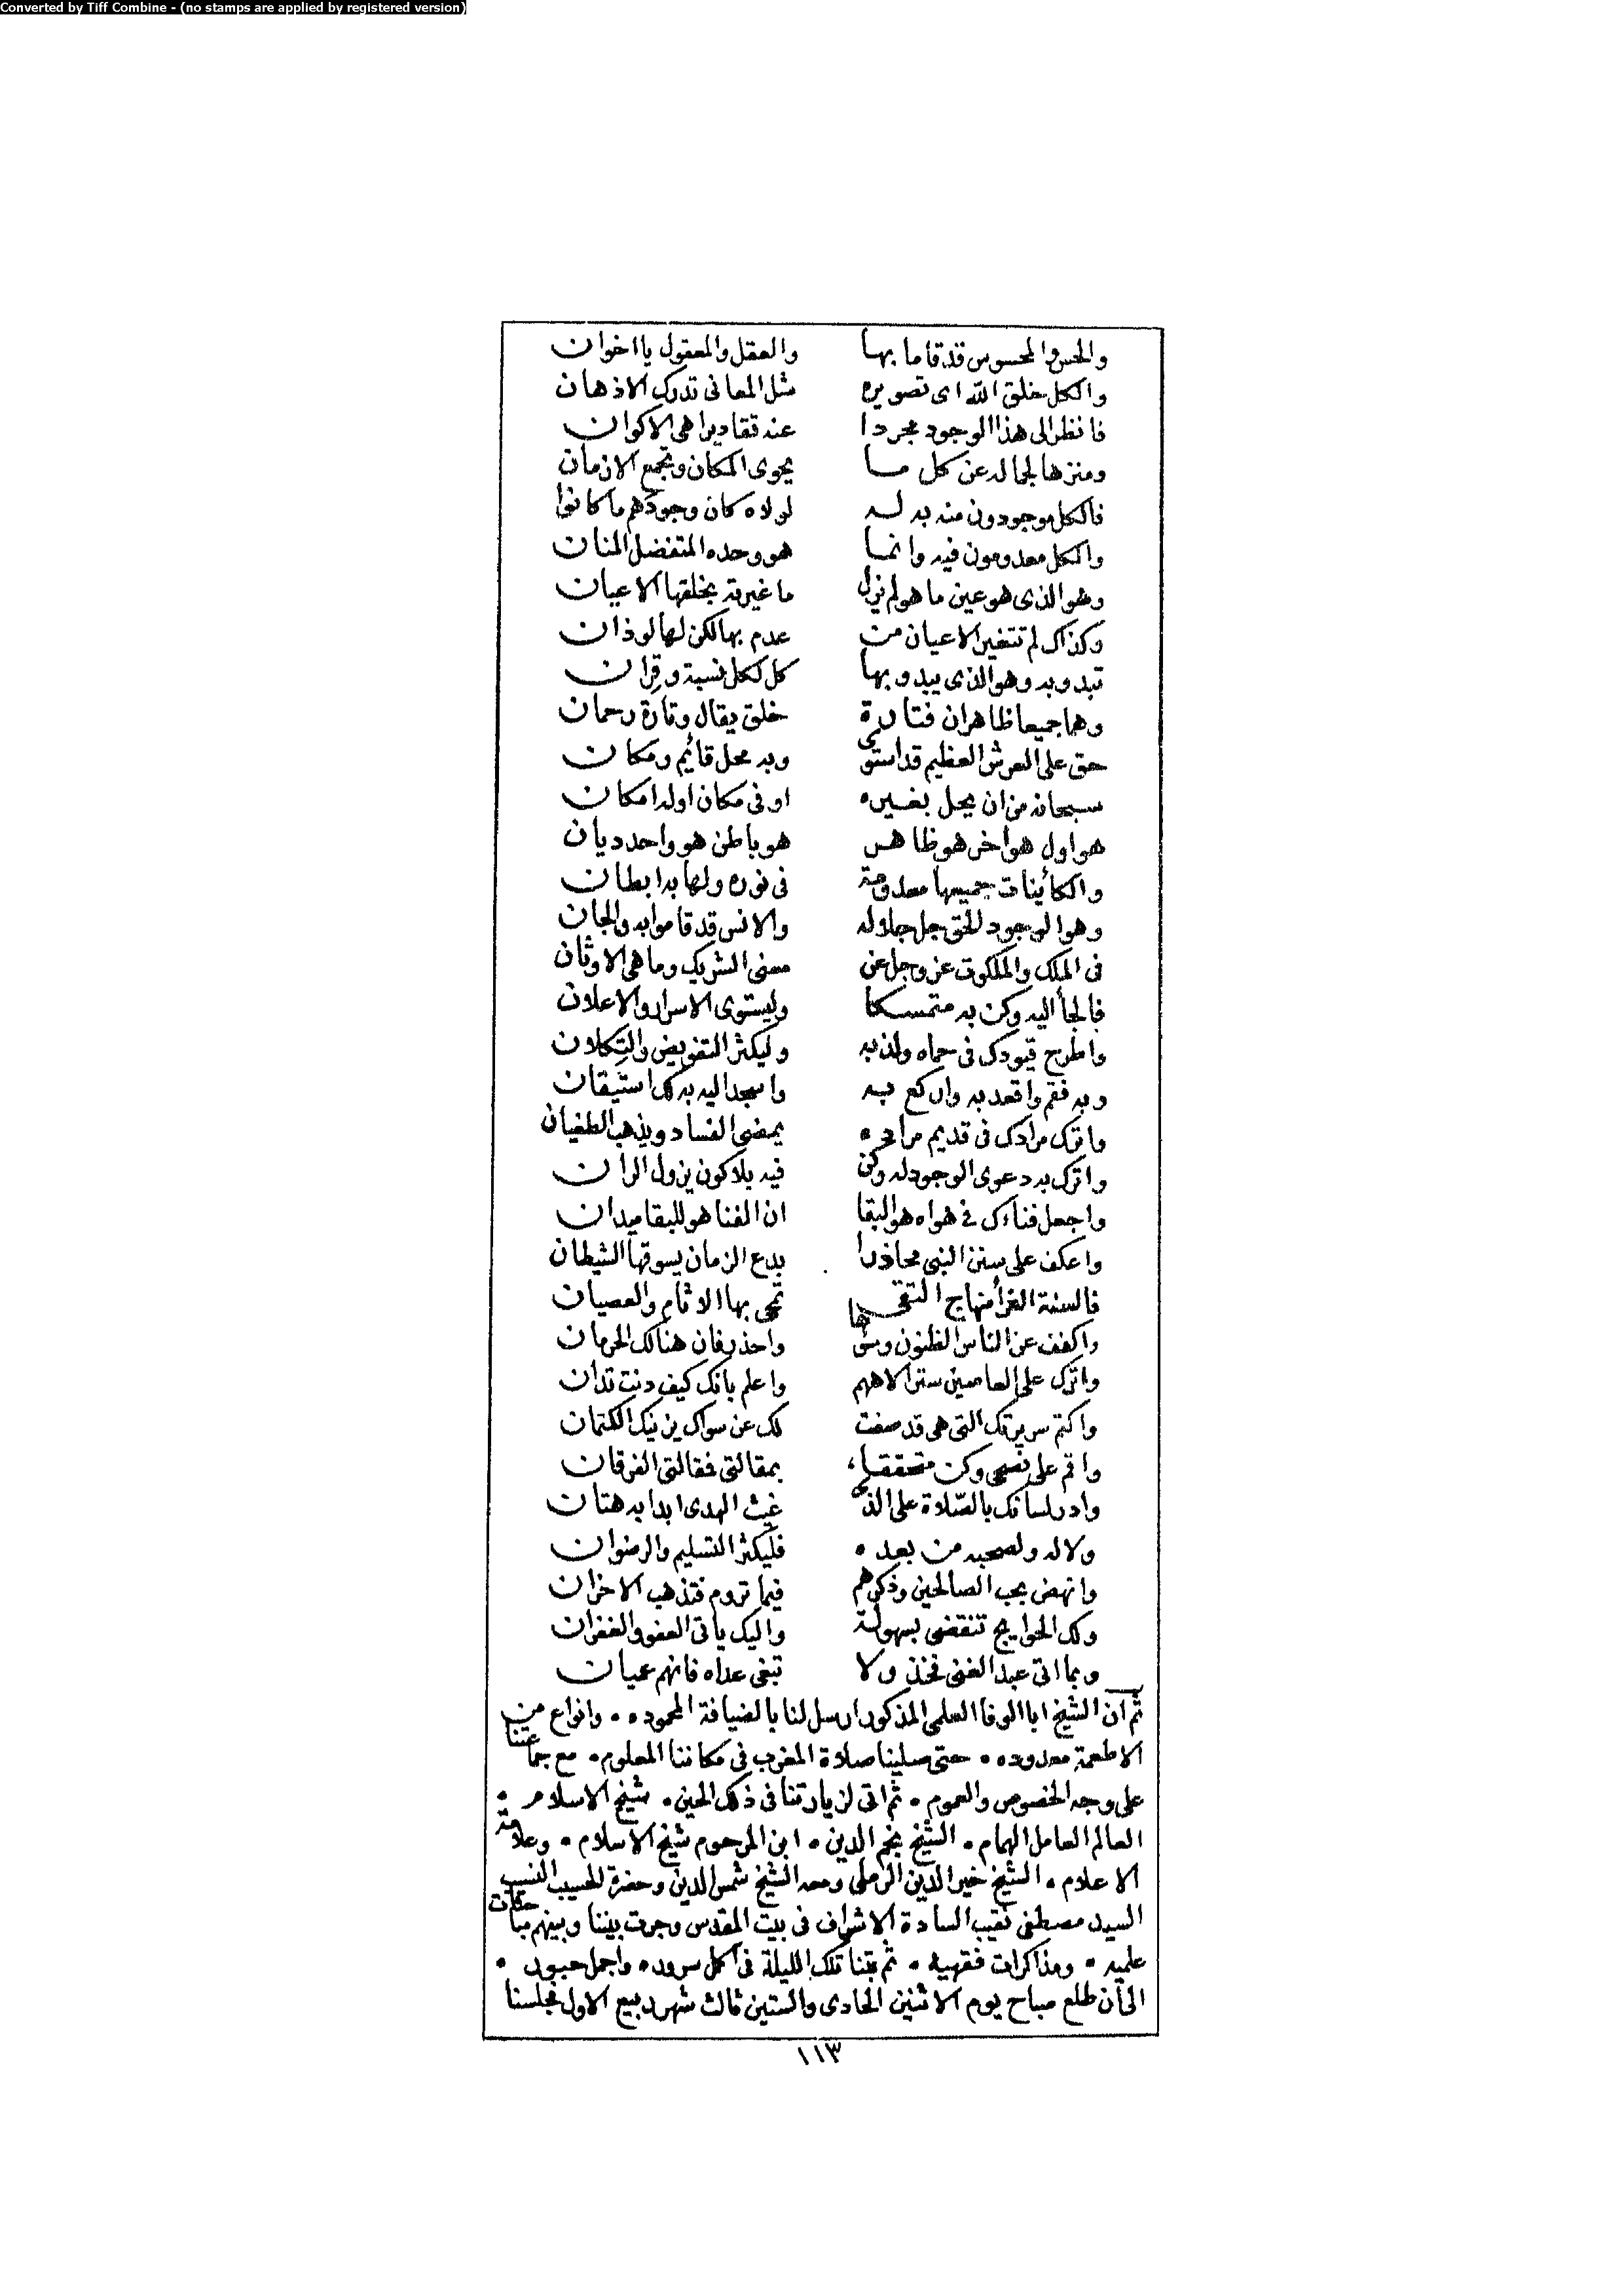 Converted by Tiff Combine - (no stamps are applied by registered version)
والحس والمحسوس قد قاما بها والعقل والمعقول يا اخوان
والكل خلق الله اى تصويره مثل المعانى تدرك الاذهان
فانظر الى هذا الوجود مجردا عند تقاديرا هى الاكوان
ومنزها لجماله عن كل ما يحوى المكان وتجمع الازمان
فالكل موجودون منه به له لولاه كان وجودهم ما كانوا
والكل معدومون فيه وانما هو وحده المتفضل المنان
وهو الذى هو عين ما هو لم نزل ما غيرته بخلقها الاعيان
وكذاك لم تتغير الاعيان من عدم بها لكن لها لوذان
تبدو به وهو الذى يبدو بها كل لكل نسبة وقران
وهما جميعا ظاهران فتارة خلق يقال وتارة رحمان
حق على العرش العظيم قد استوى وبه محل قائم ومكان
سبحانه من ان يحل بغيره او فى مكان اوله امكان
هو اول هو اخر هو ظاهر هو باطن هو واحد ديان
والكائنات جميعها معدومة فى نوره ولها بدا بطان
وهو الوجود الحق جل جلاله والانس قد قاموا به والجان
فى الملك والملكوت عز وجل عن معنى الشريك وما هى الاوثان
فالجأ اليه وكن به متمسكا وليستوى الاسرار والاعلان
واطرح قيودك فى حماه ولذ به وليكثر التفويض والتكلان
وبه فقم واقعد به واركع به واسجد اليه به كل استيقان
واترك مرادك فى قديم مراده يمضى الفساد ويذهب الطغيان
واترك به دعوى الوجود له وكن فيه بلا كون يزول الران
واجعل فناءك فى هواه هو البقا ان الفنا هو للبقا ميدان
واعكف على سنن النبى محاذرا بدع الزمان يسوقها الشيطان
فالسنة الغرأ منهاج التقى تمحى بها الاثام والعصيان
واكفف عن الناس الظنون وسوها واحذر فان هنالك الحرمان
واترك على العاصين ستر الاههم واعلم بانك كيف دنت تدان
واكتم سريرتك التى هى قد صفت لك عن سواك يزينك الكتمان
واقم على نصحى وكن متحققا بمقالتى فمقالتى الفرقان
وادر لسانك بالصلاة على الذى غيث الهدى ابدا به هتان
ولاله ولصحبه من بعده فليكثر التسليم والرضوان
وانهض بحب الصالحين وذكرهم فيما تروم فتذهب الاحزان
ولك الحوايج تنقضى بسهولة واليك ياتى العفو والغفران
وبما اتى عبد الغنى فخذ ولا تبغى عداه فانهم عميان
ثم ان الشيخ ابا الوفا العلمى المذكور ارسل لنا بالضيافة المحموده ٠ وانواع من
الاطعمة معدوده ٠ حتى صلينا صلاة المغرب فى مكاننا المعلوم ٠ مع جماعتنا
على وجه الخصوص والعموم ٠ ثم اتى لزيارتنا فى ذلك الحين ٠ شيخ الاسلام ٠
العالم العامل الهمام ٠ الشيخ نجم الدين ٠ ابن المرحوم شيخ الاسلام ٠ وعلامة
الاعلام ٠ الشيخ خير الدين الرملى ومعه الشيخ شمس الدين وحضرة الحسيب النسيب
السيد مصطفى نقيب السادة الاشراف فى بيت المقدس وجرت بيننا وبينهم مباحثات
علميه ٠ ومذاكرات فقهية ٠ ثم بتنا تلك الليلة فى اكمل سرور ٠ واجمل حبور ٠
الى ان طلع صباح يوم الاثنين الحادى والستين ثالث شهر ربيع الاول فجلسنا
١١٣